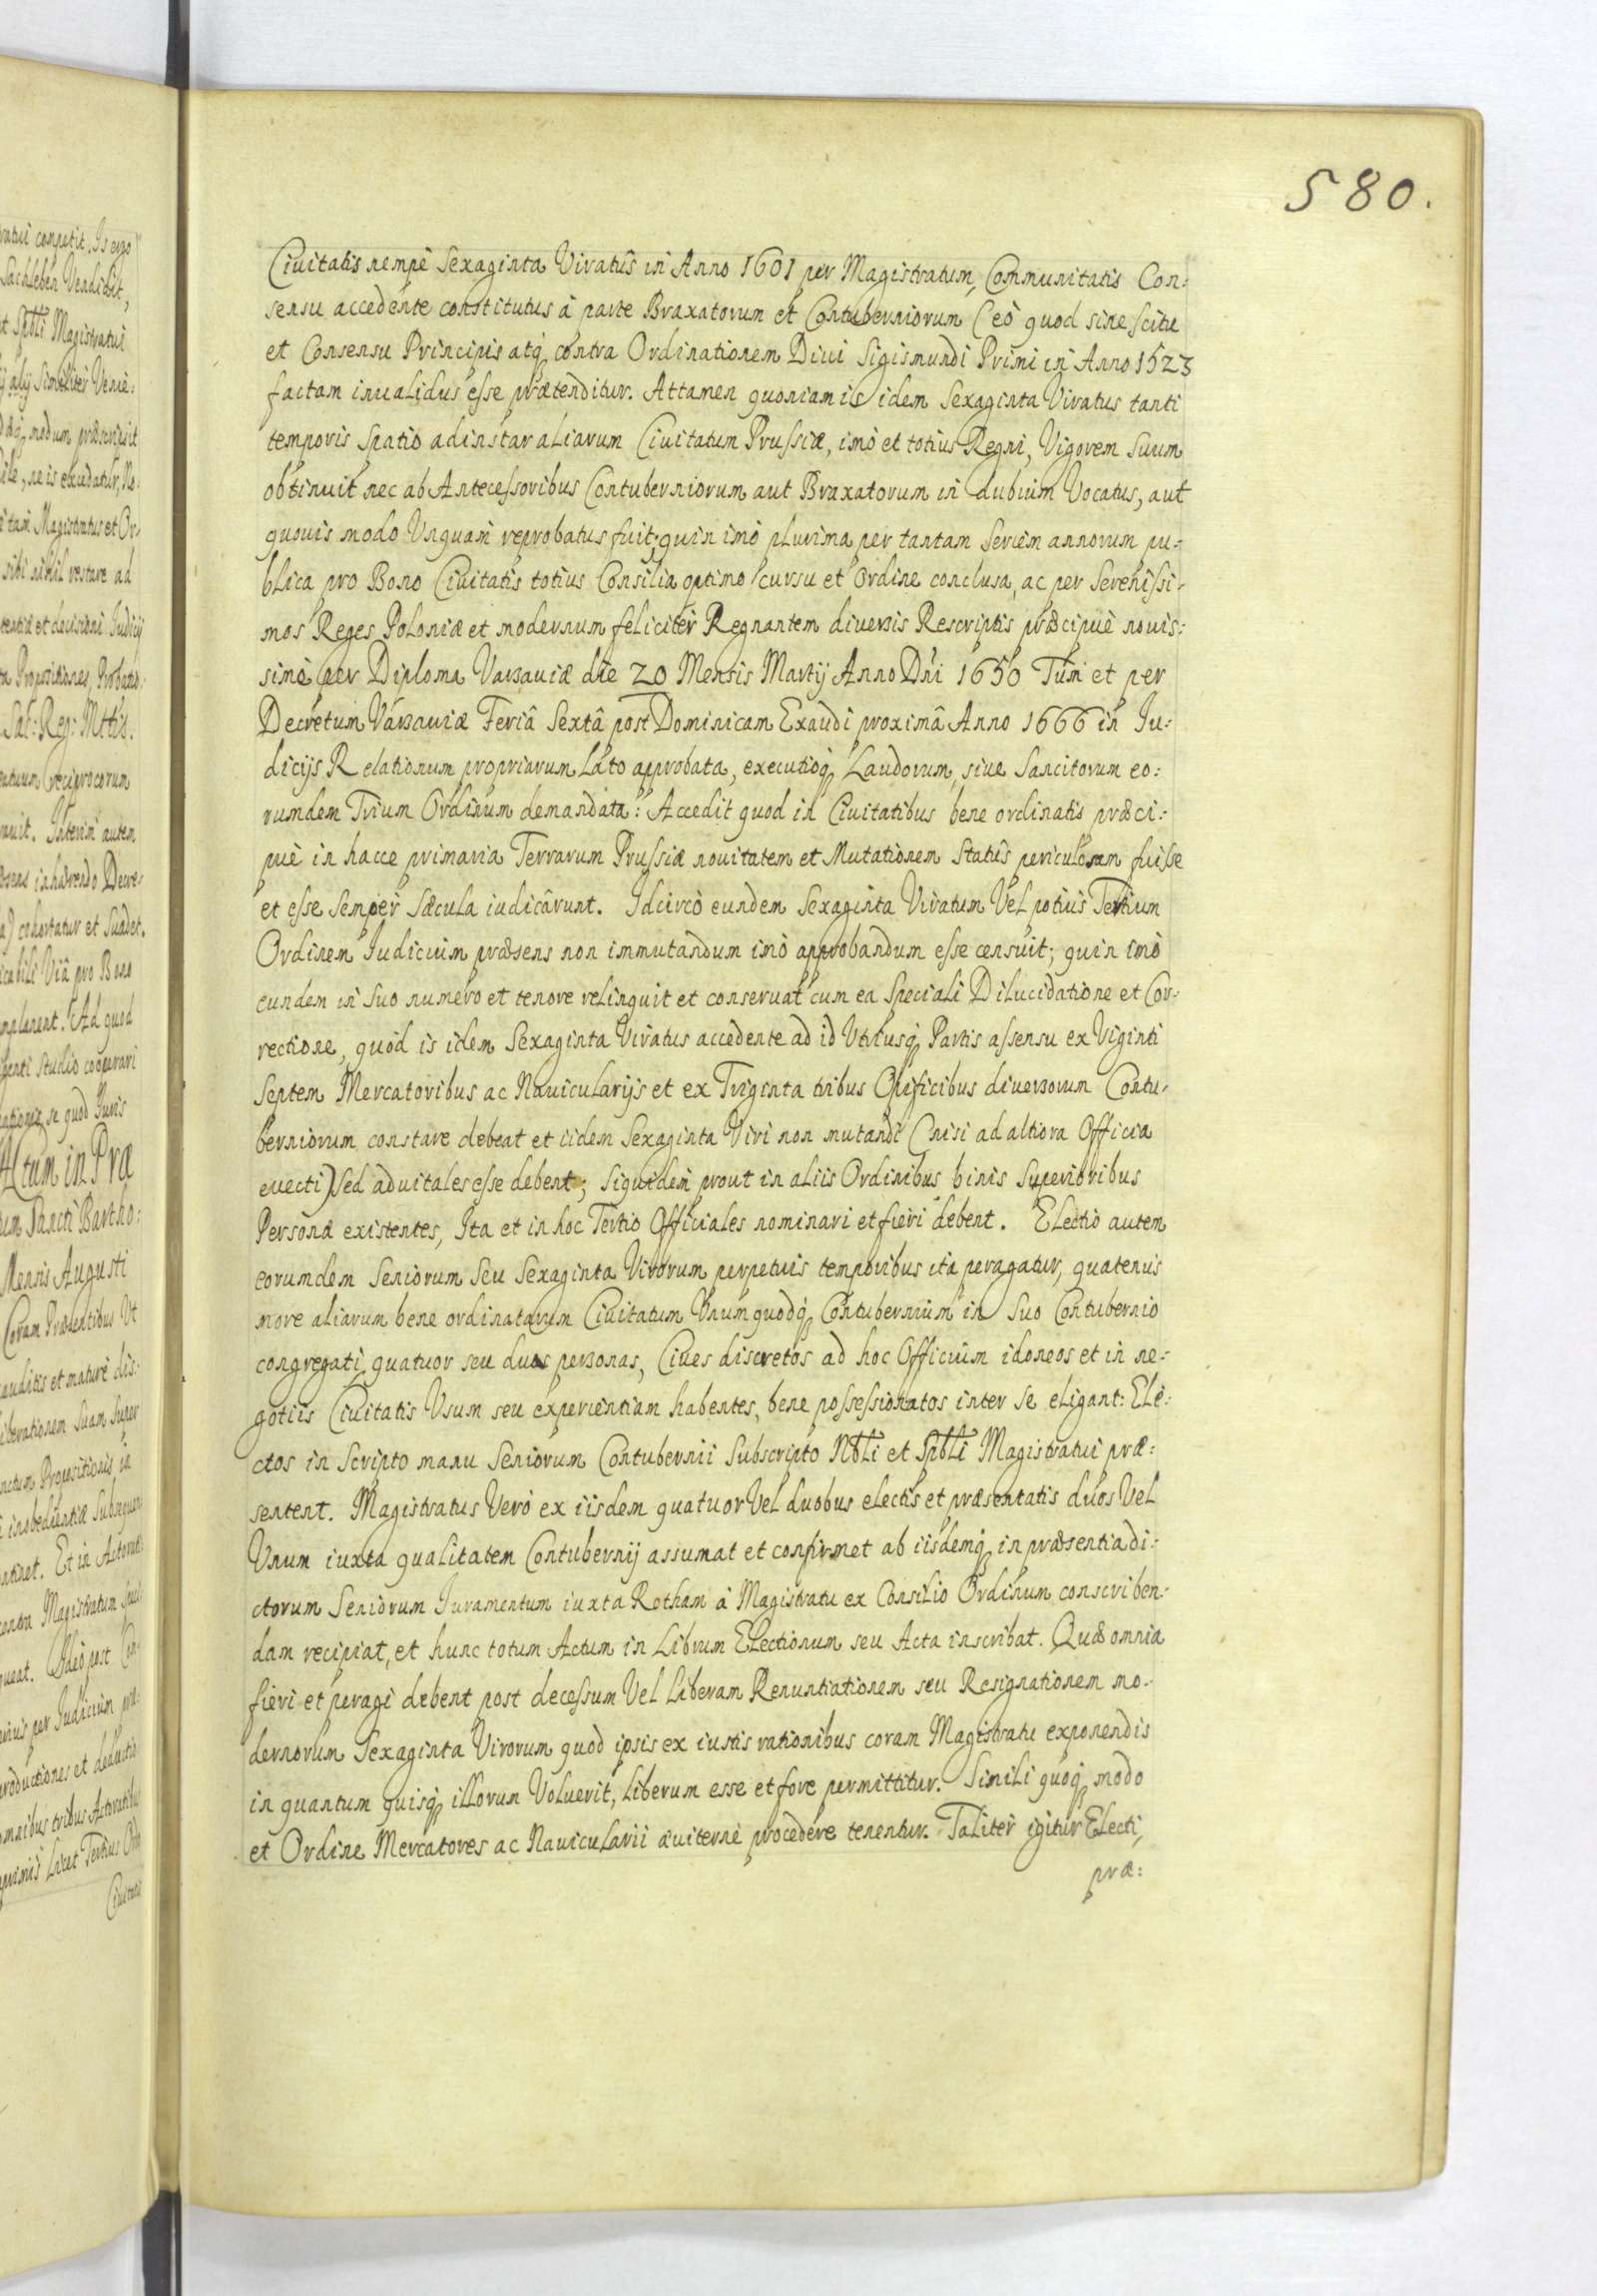 580.
Ciuitatis nempè Sexaginta Viratûs in Anno 1601 per Magistratum, Communitatis Con:
sensu accedente constitutus à parte Braxatorum et Contuberniorum (eò quod sine scitu
et Consensu Principis atq contra Ordinationem Diui Sigismundi Primi in Anno 1523
factam inualidus esse prætenditur. Attamen quoniam is idem Sexaginta Viratus tanti
temporis Spatio ad instar aliarum Ciuitatum Prussiæ, imò et totius Regni, Vigorem Suum
obtinuit nec ab Antecessoribus Contuberniorum aut Braxatorum in dubium Vocatus, aut
quouis modo Unquam reprobatus fuit; quin imò plurima per tantam Seriem annorum pu:
blica pro Bono Ciuitatis totius Consilia optimo cursu et Ordine conclusa, ac per Serenissi:
mos Reges Poloniæ et modernum feliciter Regnantem diuersis Rescriptis præcipuè nouis:
simè per Diploma Varsauiæ die 20 Mensis Martij Anno Dni 1650 Tum et per
Decretum Varsauiæ Feriâ Sextâ post Dominicam Exaudi proximâ Anno 1666 in Iu:
dicijs Relationum propriarum Lato approbata, executioq Laudorum, siue Sancitorum eo:
rumdem Trium Ordinum demandata: Accedit quod in Ciuitatibus bene ordinatis præci:
puè in hacce primaria Terrarum Prussiæ nouitatem et Mutationem Statûs periculosam fuisse
et esse Semper Sæcula iudicârunt. Idcircò eundem Sexaginta Viratum Vel potius Tertium
Ordinem Iudicium præsens non immutandum imò approbandum esse censuit; quin imò
eundem in Suo numero et tenore relinquit et conseruat cum ea Speciali Dilucidatione et Cor:
rectione, quòd is idem Sexaginta Viratus accedente ad id Utriusq Partis assensu ex Viginti
Septem Mercatoribus ac Nauicularijs et ex Triginta tribus Opificibus diuersorum Contu:
berniorum constare debeat et iidem Sexaginta Viri non mutandi (nisi ad altiora Officia
euecti) Sed aduitales esse debent; Siquidem prout in aliis Ordinibus binis Superioribus
Personæ existentes, Ita et in hoc Tertio Officiales nominari et fieri debent. Electio autem
eorumdem Seniorum Seu Sexaginta Virorum perpetuis temporibus ita peragatur, quatenus
more aliarum bene ordinatarum Ciuitatum Unumquodq Contubernium in Suo Contubernio
congregati, quatuor seu duas personas, Ciues discretos ad hoc Officium idoneos et in ne:
gotiis Ciuitatis Usum seu experientiam habentes, bene possessionatos inter se eligant: Ele:
ctos in Scripto manu Seniorum Contubernii Subscripto Nbli et Spbli Magistratui præ:
sentent. Magistratus Verò ex iisdem quatuor Vel duobus electis et præsentatis duos Vel
Unum iuxta qualitatem Contubernij assumat et confirmet ab iisdemq in præsentia di:
ctorum Seniorum Iuramentum iuxta Rotham à Magistratu ex Consilio Ordinum conscriben:
dam recipiat, et hunc totum Actum in Librum Electionum seu Acta inscribat. Quæ omnia
fieri et peragi debent post decessum Vel Liberam Renuntiationem seu Resignationem mo:
dernorum Sexaginta Virorum quod ipsis ex iustis rationibus coram Magistratu exponendis
in quantum quisq illorum Voluerit, Liberum esse et fore permittitur. Simili quoq modo
et Ordine Mercatores ac Nauicularii æuiternè procedere tenentur. Taliter igitur Electi,
præ: